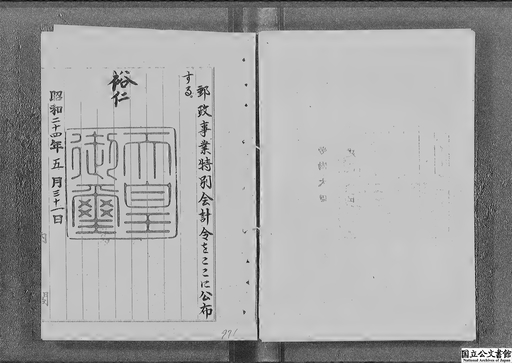 郵政事業特別会計令をここに公布
する。
裕仁
天皇御璽
昭和二十四年五月三十一日
国立公文書館
National Archives of Japan